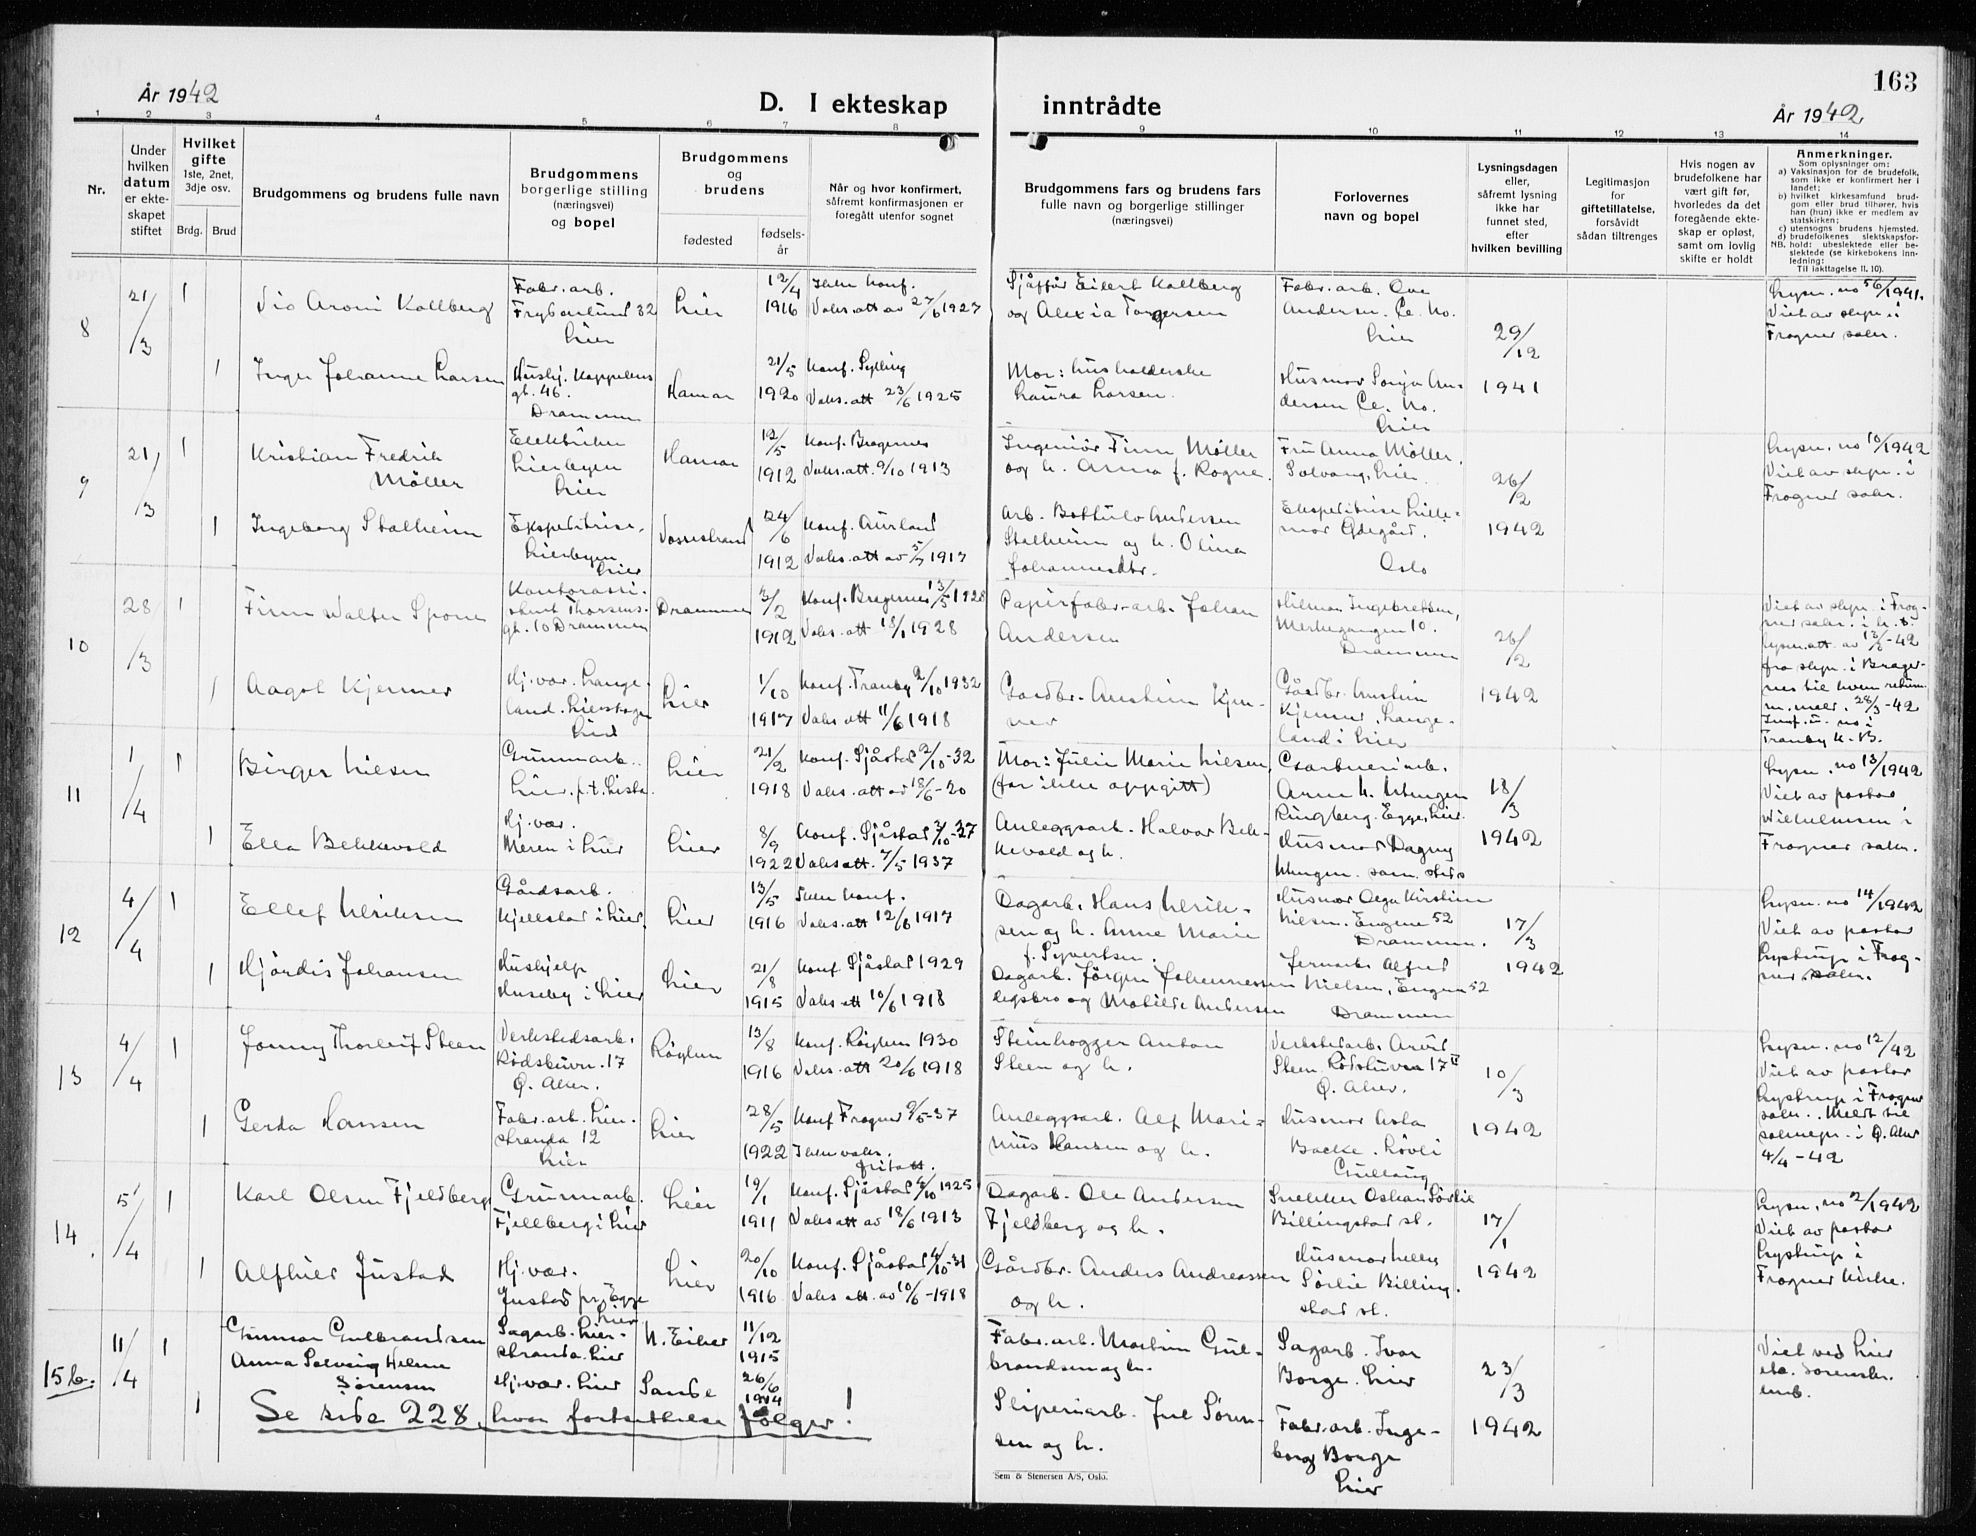 163
År 1942
D. I ekteskap inntrådte
År 1942
1 2 3 4 5 6 7 8 9 10 11 12 13 14
Nr.
Under hvilken datum er ekteskapet stiftet
Hvilket gifte
1ste, 2net, 3dje osv.
Brdg. Brud
Brudgommens og brudens fulle navn
Brudgommens borgerlige stilling (næringsvei) og bopel
Brudgommens og brudens
fødested
fødselsår
Når og hvor konfirmert, såfremt konfirmasjonen er foregått utenfor sognet
Brudgommens fars og brudens fars fulle navn og borgerlige stillinger (næringsvei)
Forlovernes navn og bopel
Lysningsdagen eller, såfremt lysning ikke har funnet sted, efter hvilken bevilling
Legitimasjon for giftetillatelse, forsåvidt sådan tiltrenges
Hvis nogen av brudefolkene har vært gift før, hvorledes da det foregående ekteskap er opløst, samt om lovlig skifte er holdt
Anmerkninger.
Som oplysninger om:
a) Vaksinasjon for de brudefolk, som ikke er konfirmert her i landet;
b) hvilket kirkesamfund brudgom eller brud tilhører, hvis han (hun) ikke er medlem av statskirken;
c) utensogns brudens hjemsted.
d) brudefolkenes slektskapsforhold: ubeslektede eller beslektede (se kirkebokens innledning:
NB. Til iakttagelse II. 10).
8
21/3
1
Kallberg
Fabr.arb.
32
Lier
Lier
12/4
1916
Ikke konf.
Vaks.att av 27/6 1927
Sjåffør Eilert Kallberg
og Alexia Torgersen
Fabr. arb. Ove
Andersen.
Lier
29/12
1941
Lysn. no 56/1941.
Viet av slpr. i
Frogner sakr.
1
Inger Johanne Larsen
Hushj.
gt. 46.
Drammen
Hamar
21/5
1920
Konf. Sylling
Vaks.att 23/6 1925
Mor: husholderske
Laura Larsen.
Husmor Sonja An-
dersen
Lier
9
21/3
1
Kristian Fredrik
Møller
Elektriker
Lierbyen
Lier
Hamar
12/5
1912
Konf. Bragernes
Vaks.att. 9/10 1913
Ingeniør Finn Møller
og h. Anna f. Rogne.
Fru Anna Møller.
Solvang, Lier.
26/2
1942
Lysn. no 10/1942
Viet av slpr. i
Frogner sakr.
1
Ingeborg Stalheim
Ekspeditrise,
Lierbyen
Lier
Vossestrand
24/6
1912
Konf. Aurland
Vaks.att av 5/7 1917
Arb. Andersen
Stalheim og h. Olina
Johannesdtr.
Ekspeditrise Lille-
mor Ødegård.
Oslo
10
28/3
1
Finn Walter
Kontorassi-
stent
gt. 10 Drammen
Drammen
3/2
1912
Konf. Bragernes 13/5 1928
Vaks.att 18/1 1928
Papirfabr.arb. Johan
Andersen
Hilmar Ingebretsen,
10.
Drammen
26/2
1942
Viet av slpr. i Frog-
ner sakr. i h. t.
lysn.att. av 13/3-42
fra slpr. i Brager-
nes til hvem return.
m. meld. 28/3-42
no i
Tranby K.B.
1
Aagot Kjenner
Hj.vær. Lange-
land. Lierskogen
Lier
Lier
1/10
1917
Konf. Tranby 2/10 1932
Vaks att 11/6 1918
Gårdbr. Anstein Kjen-
ner
Gårdbr. Anstein
Kjenner, Lange-
land i Lier
11
1/4
1
Birger Nilsen
Grunnarb..
Lier. p.t. Lista.
Lier
21/2
1918
Konf. Sjåstad 2/10-32
Vaks. att av 18/6-20
Mor: Julie Marie Nilsen,
(far ikke oppgitt)
Garbneriarb.
Arne
Ringberg. Egge, Lier.
18/3
1942
Lysn. no 13/1942
Viet av pastor
Wilhelmsen i
Frogner sakr.
1
Ella Bekkevold
Hj.vær.
Meren i Lier
Lier
8/9
1922
Konf. Sjåstad 3/10-37
Vaks att. 7/5 1937
Anleggsarb. Halvor Bek-
kevold og h.
Husmor Dagny
sam. sted
12
4/4
1
Ellef Ulriksen
Gårdsarb.
Kjellstad i Lier.
Lier
13/5
1916
Ikke konf.
Vaks. att 12/6 1917
Dagarb. Hans Ulrik-
sen og h. Anne Marie
f. Syvertsen.
Husmor Olga Kirstine
Nilsen. Engene 52
Drammen.
17/3
1942
Lysn. no 14/1942
Viet av pastor
Lystrup i Frog-
ner sakr.
1
Hjørdis Johansen
Hushjelp
Huseby i Lier
Lier
21/8
1915
Konf. Sjåstad 1929
Vaks att 10/6 1918
Dagarb. Jørgen Johannessen
og Matilde Andersen
Jernarb. Alfred
Nielsen, Engene 52
Drammen
13
4/4
1
Jonny Thorleif Steen
Verkstedsarb.
Rødstuvn. 17
Ø. Aker.
Røyken
13/8
1916
Konf. Røyken 1930
Vaks. att 20/6 1918
Steinhogger Anton
Steen og h.
Verkstedarb. Arvid
Steen. Rødstuvn 17 II
Ø. Aker.
10/3
1942
Lysn. no 12/42
Viet av pastor
Lystrup i Frogner
sakr. Meldt til
soknepr. i Ø. Aker
4/4-42
1
Gerda Hansen
Fabr.arb. Lier-
stranda 12
Lier
Lier
28/5
1922
Konf Frogner 9/5-37
Ikke vaks.
fritatt.
Anleggsarb. Alf Mari-
nius Hansen og h.
Husmor Asta
Backe.
Gullaug
14
5/4
1
Karl Olsen Fjeldberg
Grunnarb.
Fjellberg i Lier
Lier
19/1
1911
Konf. Sjåstad 4/10 1925
Vaks att av 18/6 1913
Dagarb. Ole Andersen
Fjeldberg og h.
Snekker Oskar Sørlie
Billingstad st.
17/1
1942
Lysn, no 2/1942
Viet av pastor
Lystrup i
Frogner kirke.
1
Alfhild Justad
Hj.vær.
Justad pr. Egge
Lier
Lier
20/10
1916
Konf. Sjåstad 4/10-31
Vaks att. av 10/6-1918
Gårdbr. Anders Andreassen
og h.
Husmor
Sørlie Billing-
stad st.
15 b.
11/4
1
Gunnar Gulbrandsen
Sagarb. Lier-
stranda. Lier
N. Eiker
11/12
1915
Fabr.arb. Martin Gul-
brandsen og h.
Sagarb. Ivar
Borge. Lier
23/3
1942
Viet ved Lier
etc. Sorenskr.
emb.
1
Anna Solveig Helene
Sørensen
Hj.vær. Lier
Sande
26/6
1914
Sliperiarb. Jul Søren-
sen og h.
Fabr.arb. Inge-
borg Borge
Lier
Se side 228, hvor fortsettelse følger!
Sem & Stenersen A/S, Oslo.